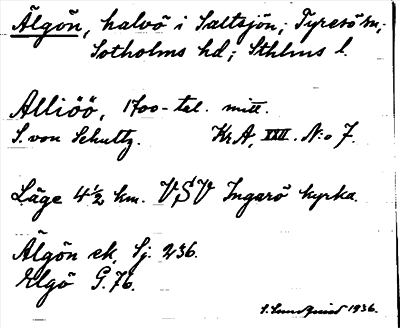 Älgön, halvö i Saltsjön; Tyresö sn;
Sotholms hd; Sthlms l.
Alliöö, 1700-tal. mitt.
S. von Schultz. Kr.A, XXII. N:o 7.
Läge 4½ km. VSV Ingarö kyrka.
Älgön ek. bl. Sj. 236.
Elgö G. 76.
S. Sundquist 1936.